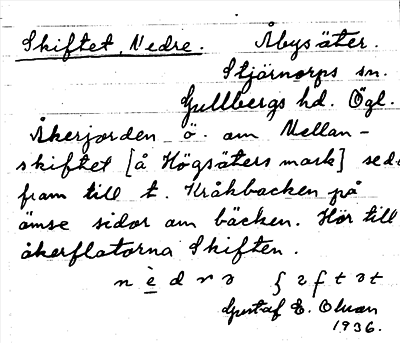 Skiftet, Nedre. Åbysäter.
Stjärnorps sn.
Gullbergs hd. Ögl.
Åkerjorden ö. om Mellan-
skiftet [å Högsäters mark] sed
fram till t. Kråkbacken på
ömse sidor om bäcken. Hör till
åkerflatorna Skiften.
Gustaf E. Olsson
1936.